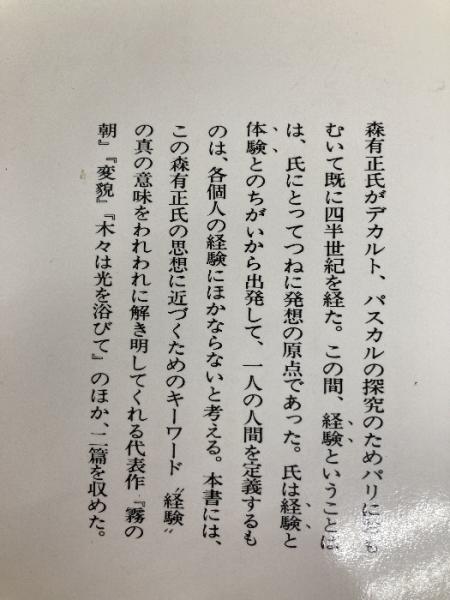 森有正氏がデカルト、パスカルの探究のためパリにおも
むいて既に四半世紀を経た。この間、経験ということは
は、氏にとってつねに発想の原点であった。氏は経験と
体験とのちがいから出発して、一人の人間を定義するも
のは、各個人の経験にほかならないと考える。本書には、
この森有正氏の思想に近づくためのキーワード〝経験〟
の真の意味をわれわれに解き明してくれる代表作『霧の
朝』『変貌』『木々は光を浴びて』のほか、二篇を収めた。